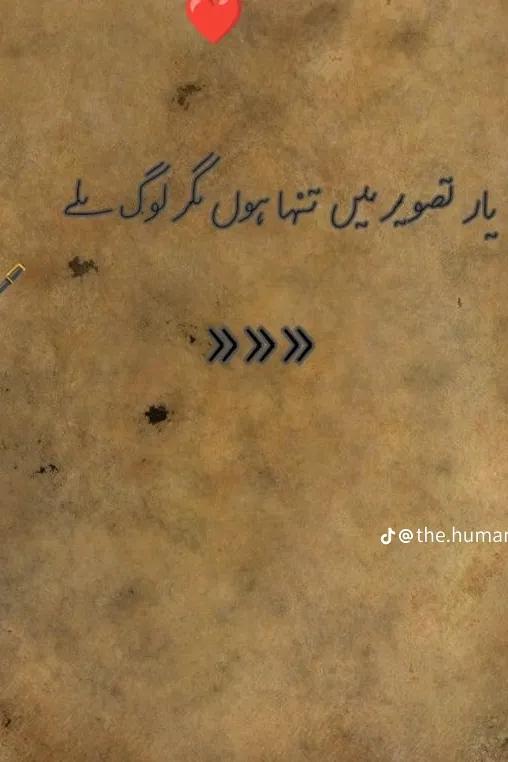 یار تصویر میں تنہا ہوں مگر لوگ ملے
»»»
@the.human